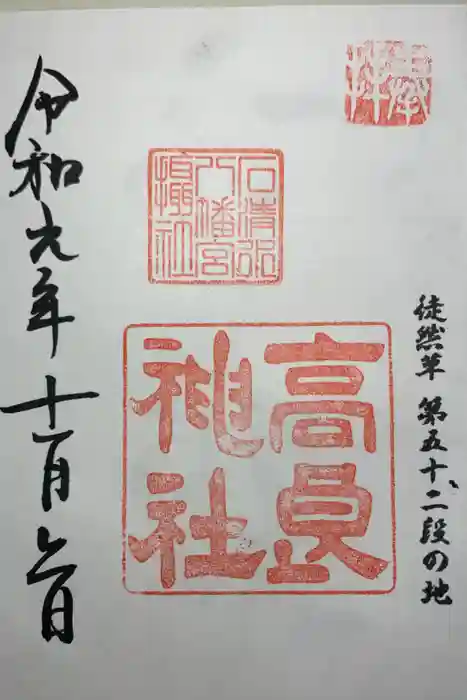 奉拝
徒然草 第五十二段の地
石清水
八幡宮
攝社
高良
神社
令和元年十一月六日